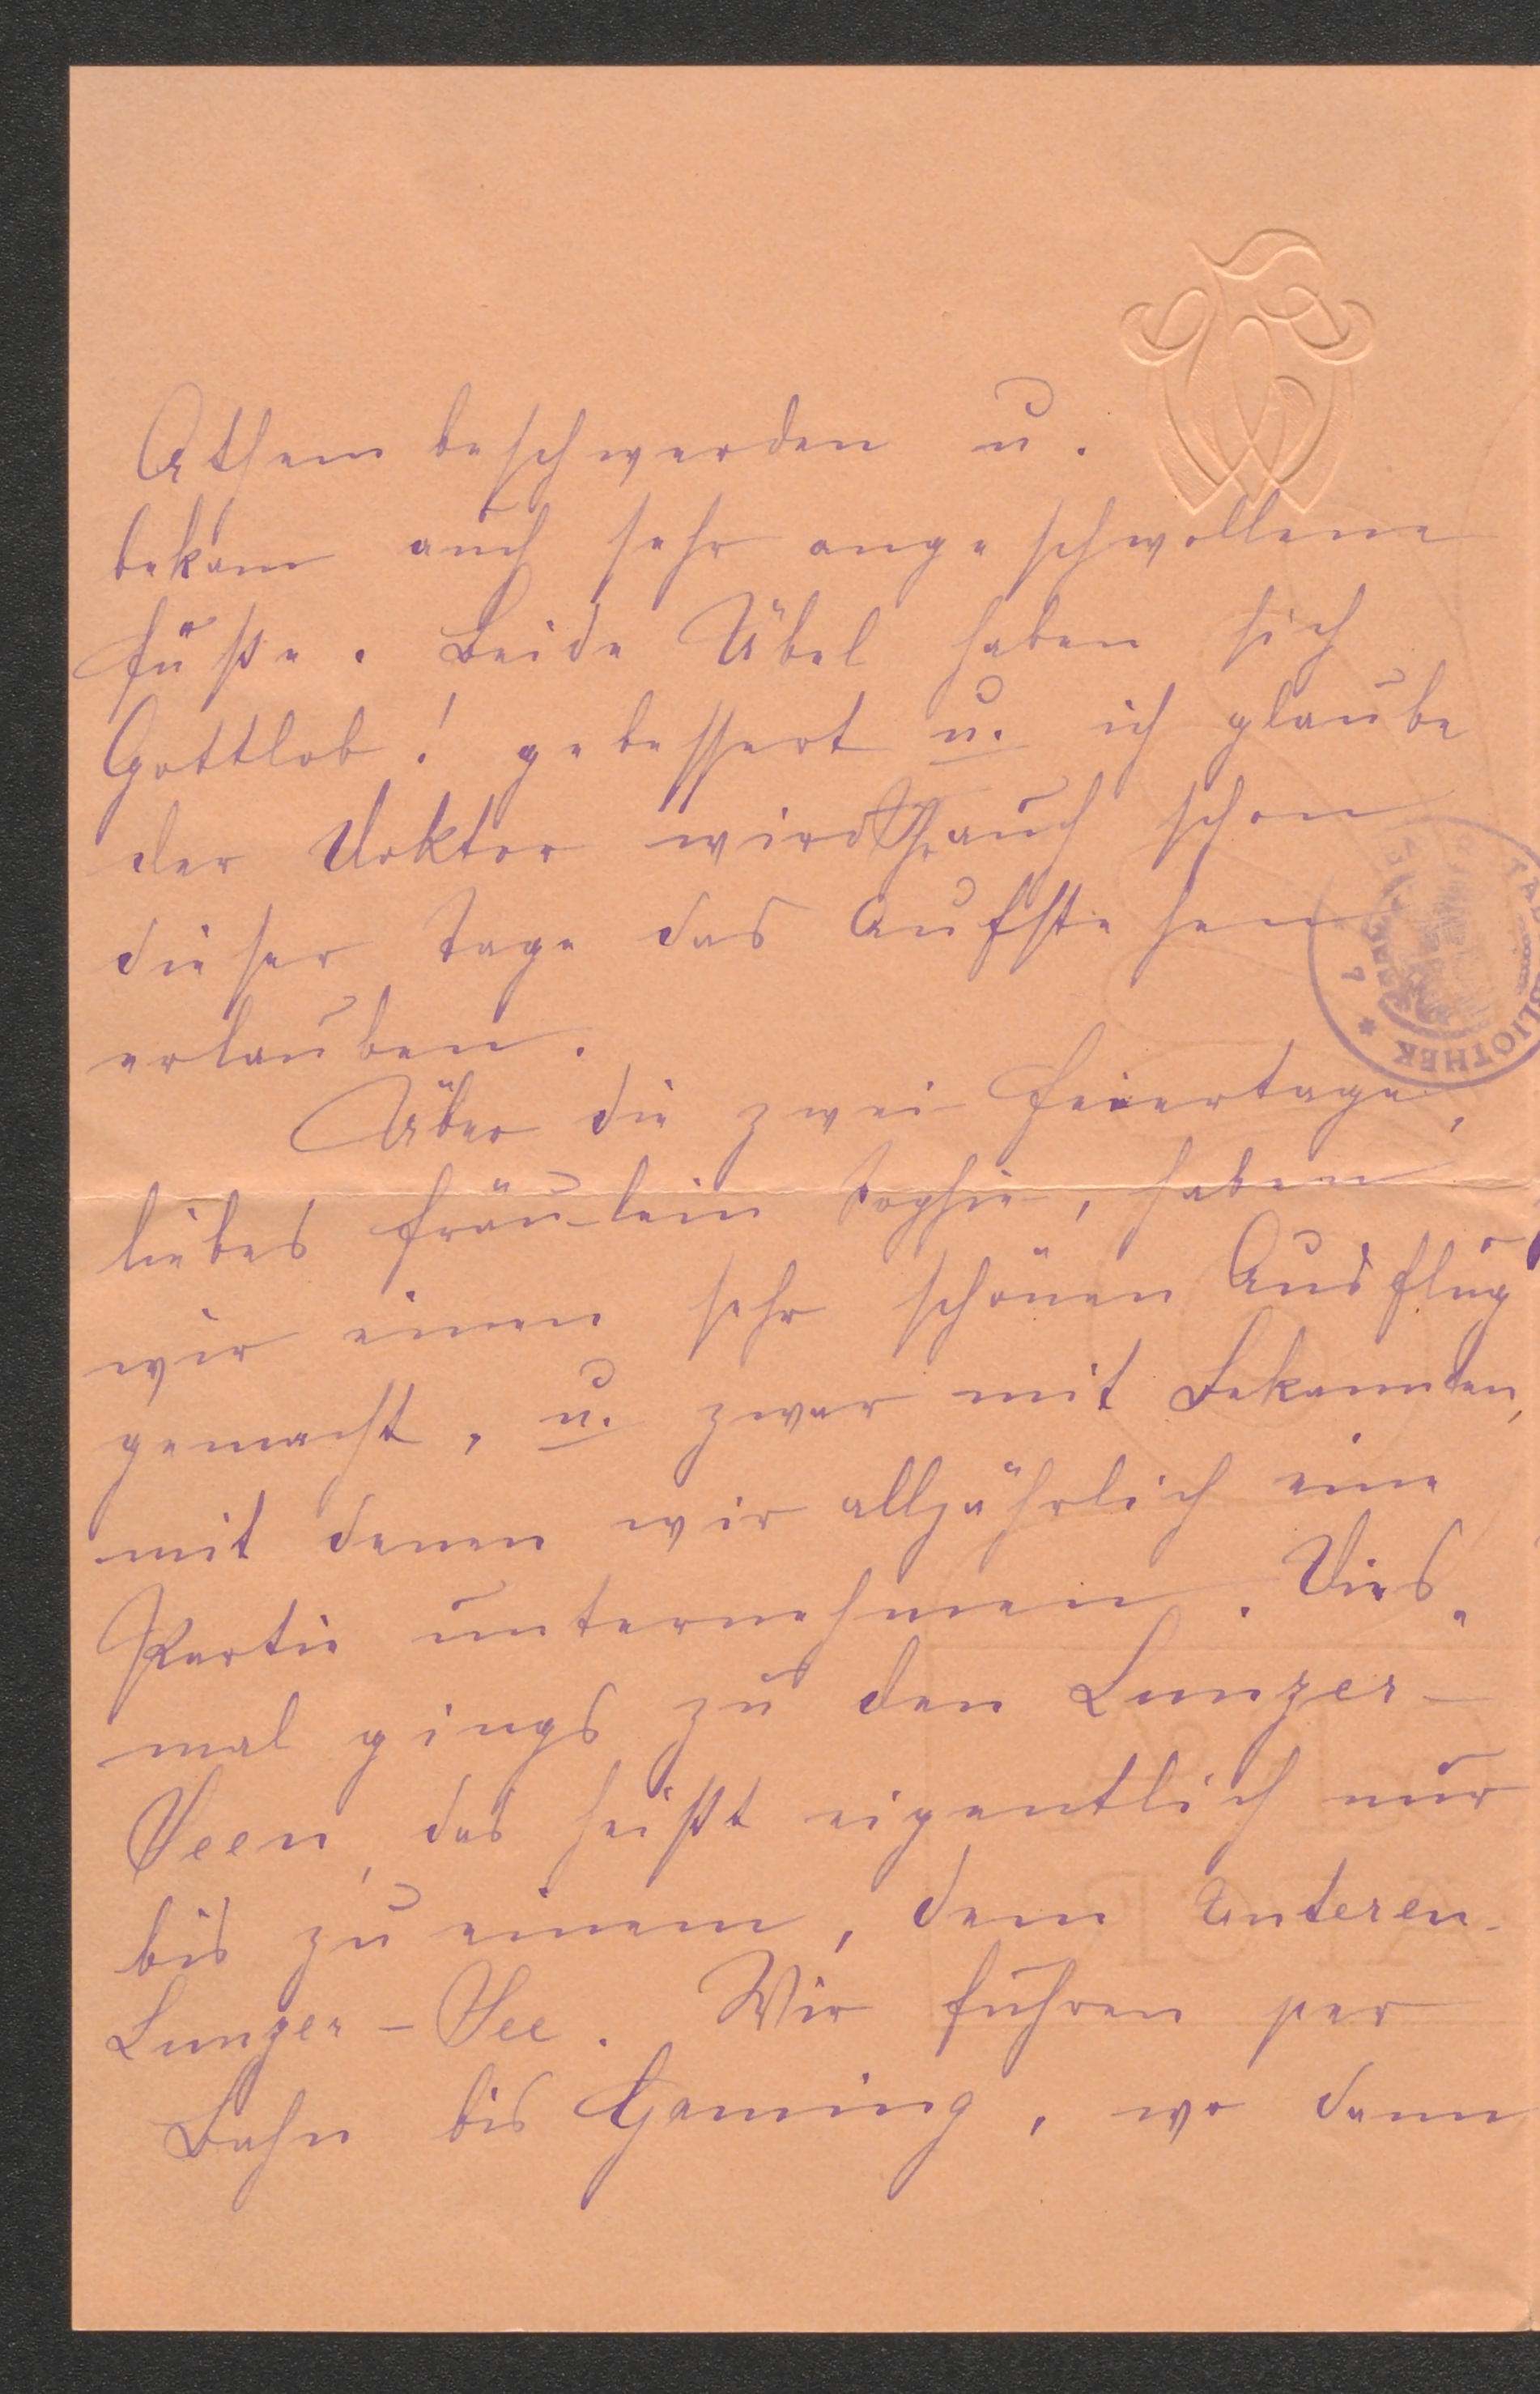 Athembeschwerden u.
bekam auch sehr angeschwollene
Füße. Beide Übel haben sich
Gottlob! gebessert u. ich glaube
der Doktor wird ihr auch schon
dieser Tage das Aufstehen
erlauben.
Über die zwei Feiertage,
liebes Fräulein Sophie, haben
wir einen sehr schönen Ausflug
gemacht, u. zwar mit Bekannten,
mit denen wir alljährlich eine
Partie unternehmen. Dies-
mal gings zu den Lunzer-
Seen, das heißt eigentlich nur
bis zu einem, dem Unteren-
Lunzer-See. Wir fuhren per
Bahn bis Gaming, wo dann
BIBLIOTHEK